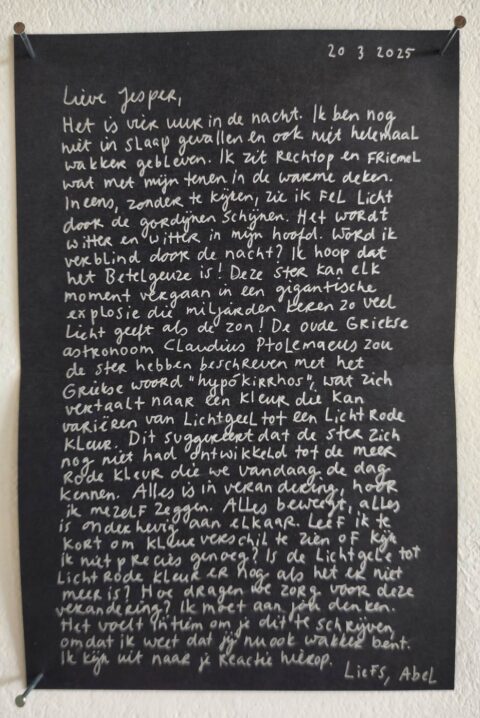 20 3 2025
Lieve Jesper,
Het is vier uur in de nacht. Ik ben nog
niet in slaap gevallen en ook niet helemaal
wakker gebleven. Ik zit rechtop en friemel
wat met mijn tenen in de warme deken.
Ineens, zonder te kijken, zie ik fel licht
door de gordijnen schijnen. Het wordt
witter en witter in mijn hoofd. Word ik
verblind door de nacht? Ik hoop dat
het Betelgeuze is! Deze ster kan elk
moment vergaan in een gigantische
explosie die miljarden keren zo veel
licht geeft als de zon! De oude Griekse
astronoom Claudius Ptolemaeus zou
de ster hebben beschreven met het
Griekse woord "hypókirrhos", wat zich
vertaalt naar een kleur die kan
variëren van lichtgeel tot een licht rode
kleur. Dit suggereert dat de ster zich
nog niet had ontwikkeld tot de meer
rode kleur die we vandaag de dag
kennen. Alles is in verandering, hoor
ik mezelf zeggen. Alles beweegt, alles
is onderhevig aan elkaar. Leef ik te
kort om kleurverschil te zien of kijk
ik niet precies genoeg? Is de lichtgele tot
licht rode kleur er nog als het er niet
meer is? Hoe dragen we zorg voor deze
verandering? Ik moet aan jou denken.
Het voelt intiem om je dit te schrijven
omdat ik weet dat jij nu ook wakker bent.
Ik kijk uit naar je reactie hierop.
Liefs, Abel